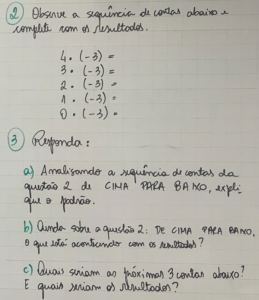 2 Observe a sequência de contas abaixo e
complete com os resultados.
4 · (-3) =
3 · (-3) =
2 · (-3) =
1 · (-3) =
0 · (-3) =
3 Responda:
a) Analisando a sequência de contas da
questão 2 de CIMA PARA BAIXO, expli-
que o padrão.
b) Ainda sobre a questão 2: DE CIMA PARA BAIXO,
o que está acontecendo com os resultados?
c) Quais seriam as próximas 3 contas abaixo?
E quais seriam os resultados?